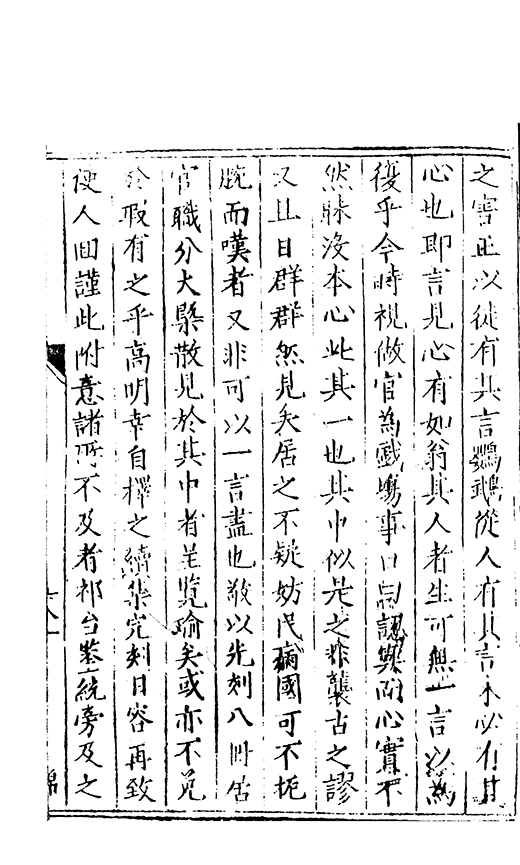 之害正以徒有其言鸚鵡從人有其言未必有其
心也即言見心有如翁其人者生可無一言以為
復乎今時視做官為戲場事口與心實不
然昧沒本心此其一也其中似是之非襲古之謬
又且日群群然見矣居之不疑妨民病國可不扼
腕而嘆者又非可以一言盡也敬以先刻八冊居
官職分大槩散見於其中者呈覽瑜矣或亦不免
於瑕有之乎高明幸自擇之續集完刻日容再致
使人回謹此附意諸所不及者祁台鑒統旁及之